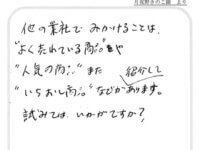 月夜野きのこ園 より
他の業社でみかけることは、
"よく売れている商品"や
"人気の商品"また 紹介して
"いちおし商品"などがあります。
試みては いかがですか?